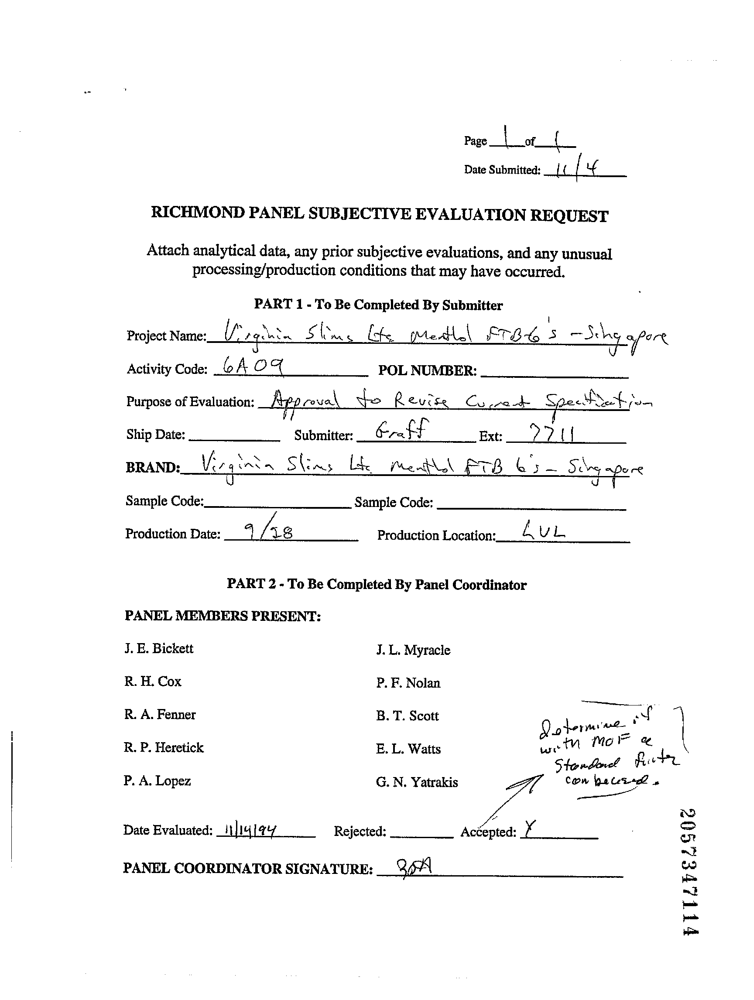 Page 1 of 1
Date Submitted: 11/4
RICHMOND PANEL SUBJECTIVE EVALUATION REQUEST
Attach analytical data, any prior subjective evaluations, and any unusual
processing/production conditions that may have occurred.
PART 1 - To Be Completed By Submitter
Project Name: Virginia Slims Lts Menthol FTB 6's - Singapore
Activity Code: 6A09 POL NUMBER:
Purpose of Evaluation: Approval to Revise Current Specification
Ship Date: Submitter: Graff Ext: 7711
BRAND: Virginia Slims Lts Menthol FTB 6's - Singapore
Sample Code: Sample Code:
Production Date: 9/28 Production Location: LVL
PART 2 - To Be Completed By Panel Coordinator
PANEL MEMBERS PRESENT:
J. E. Bickett J. L. Myracle
R. H. Cox P. F. Nolan
R. A. Fenner B. T. Scott
R. P. Heretick E. L. Watts
P. A. Lopez G. N. Yatrakis
Determine if
with MOF a
Standard
can be used.
Date Evaluated: 11/14/94 Rejected: Accepted: X
PANEL COORDINATOR SIGNATURE:
2057347114